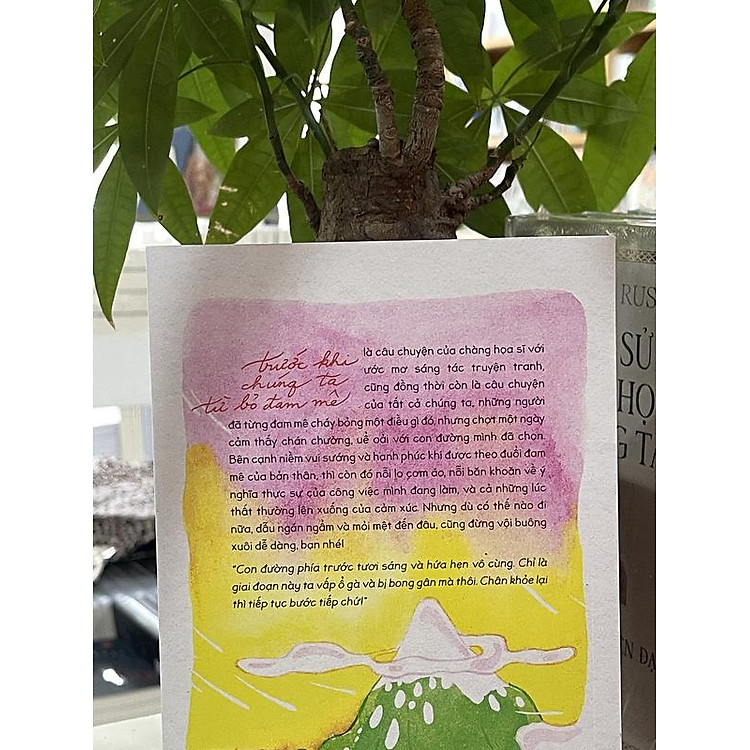 trước khi
chúng ta
từ bỏ đam mê
là câu chuyện của chàng họa sĩ với
ước mơ sáng tác truyện tranh,
cũng đồng thời còn là câu chuyện
của tất cả chúng ta, những người
đã từng đam mê cháy bỏng một điều gì đó, nhưng chợt một ngày
cảm thấy chán chường, uể oải với con đường mình đã chọn.
Bên cạnh niềm vui sướng và hạnh phúc khi được theo đuổi đam
mê của bản thân, thì còn đó nỗi lo cơm áo, nỗi băn khoăn về ý
nghĩa thực sự của công việc mình đang làm, và cả những lúc
thất thường lên xuống của cảm xúc. Nhưng dù có thế nào đi
nữa, dẫu ngán ngẩm và mỏi mệt đến đâu, cũng đừng vội buông
xuôi dễ dàng, bạn nhé!
"Con đường phía trước tươi sáng và hứa hẹn vô cùng. Chỉ là
giai đoạn này ta vấp ổ gà và bị bong gân mà thôi. Chân khỏe lại
thì tiếp tục bước tiếp chứ!"
RUS
SỬ
HỌ
G TÂ
ỆN ĐẠ